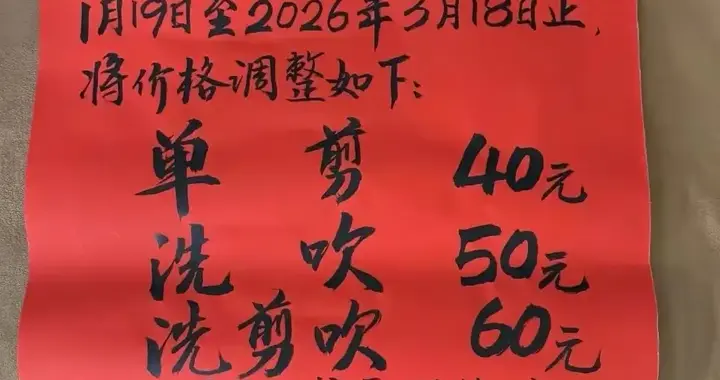 1月19日至2026年3月18日止,
将价格调整如下:
单 剪 40元
洗 吹 50元
洗剪吹 60元